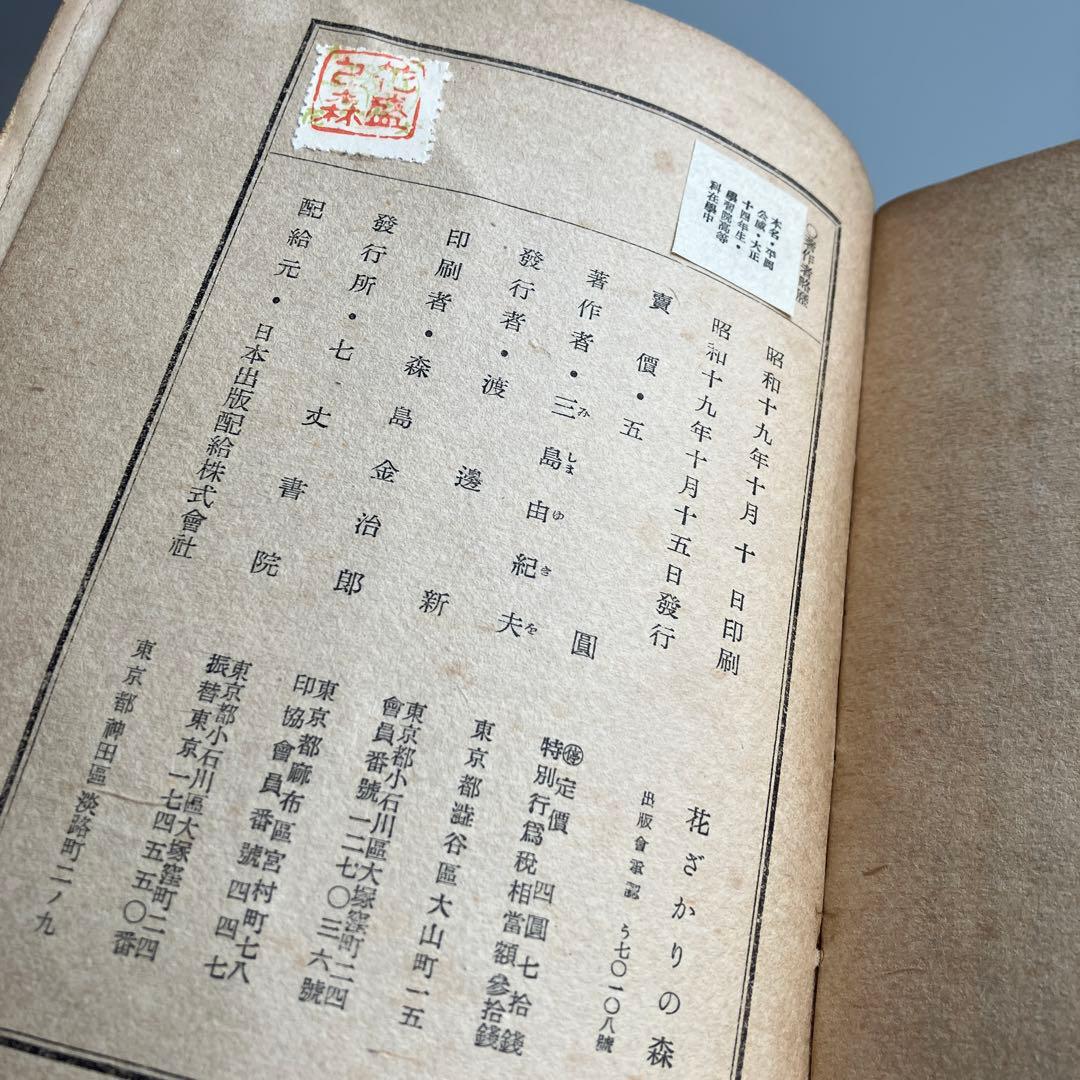 花盛
乃森
○著作者略歴
本名・平岡
公威・大正
十四年生・
學習院高等
科在學中
花ざかりの森
出版會承認 う七〇一〇八號
昭和十九年十月十日印刷
昭和十九年十月十五日發行
賣價・五圓
㊡定價四圓七拾錢
特別行爲税相當額參拾錢
著作者・三島由紀夫
みしまゆきを
東京都澁谷區大山町一五
發行者・渡邊新
東京都小石川區大塚窪町二四
會員番號一二七〇三六號
印刷者・森島金治郎
東京都麻布區宮村町七八
印協會員番號四四七
發行所・七丈書院
東京都小石川區大塚窪町二四
振替東京一七四五五〇番
配給元・日本出版配給株式會社
東京都神田區淡路町二ノ九